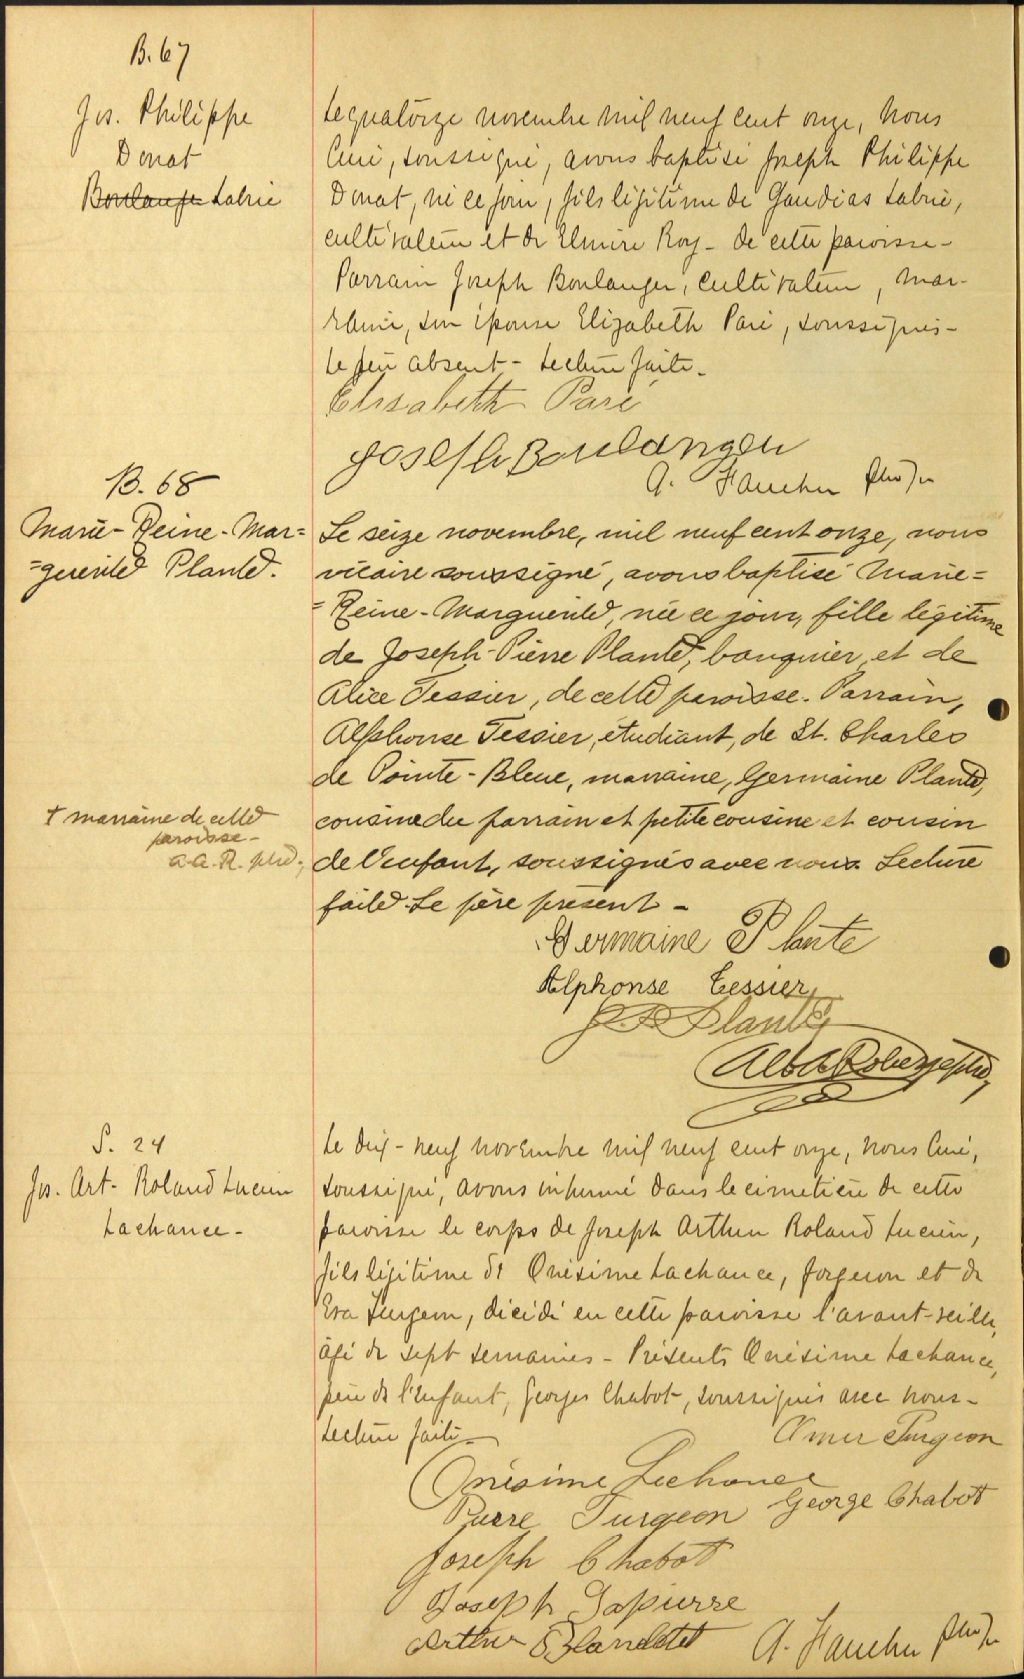 B. 67
Jos. Philippe
Donat
Boulanger Labrie
Le quatorze novembre mil neuf cent onze, Nous
Curé, soussigné, avons baptisé Joseph Philippe
Donat, né ce jour, fils légitime de Gaudias Labrie,
cultivateur et de Elmire Roy - de cette paroisse -
Parrain Joseph Boulanger, cultivateur, mar-
raine, son épouse Elizabeth Paré, soussignés -
Le père absent - Lecture faite -
Elisabeth Paré
Joseph Boulanger
A. Faucher ptre
B. 68
Marie-Reine-Mar=
=guerite Plante.
Le seize novembre, mil neuf cent onze, nous
vicaire soussigné, avons baptisé Marie=
=Reine-Marguerite, née ce jour, fille légitime
de Joseph-Pierre Plante, banquier, et de
Alice Tessier, de cette paroisse. Parrain,
Alphonse Tessier, étudiant, de St. Charles
de Pointe-Bleue, marraine, Germaine Plante,
+ marraine de cette
paroisse -
a.a.R. ptre.
cousine du parrain et petite cousine et cousin
de l'enfant, soussignés avec nous. Lecture
faite. Le père présent -
Germaine Plante
Alphonse Tessier
J. P. Plante
S. 24
Jos. Art- Roland Lucien
Lachance -
Le dix-neuf novembre mil neuf cent onze, Nous Curé,
soussigné, avons inhumé dans le cimetière de cette
paroisse le corps de Joseph Arthur Roland Lucien,
fils légitime de Onésime Lachance, forgeron et de
Eva Turgeon, décédé en cette paroisse l'avant-veille,
âgé de sept semaines - Présents Onésime Lachance,
père de l'enfant, Georges Chabot, soussignés avec nous -
Lecture faite -
Omer Turgeon
Onésime Lachance
George Chabot
Pierre Turgeon
Joseph Chabot
Joseph Lapierre
Arthur Blanchet
A. Faucher ptre